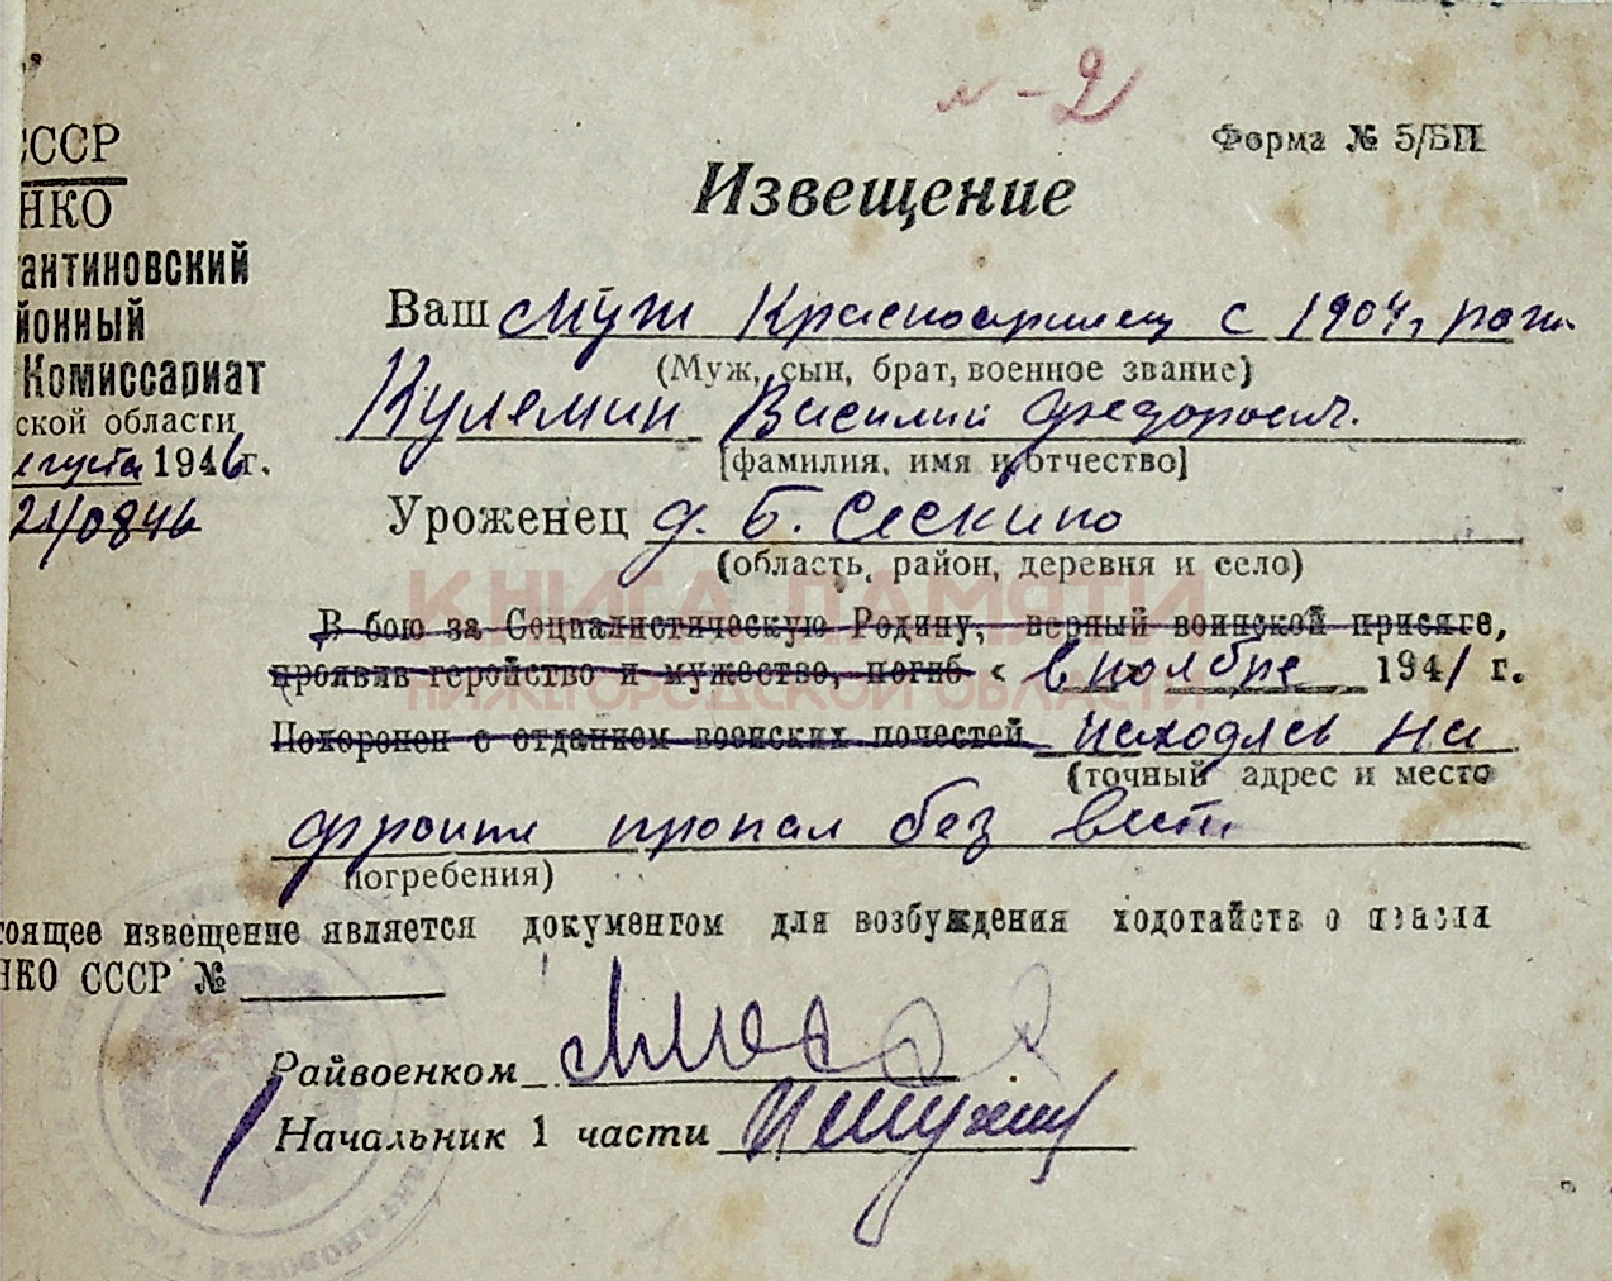 м-2
Форма № 5/БП
СССР
НКО
Извещение
антиновский
йонный
Комиссариат
ской области
августа 1946 г.
21/0846
Ваш муж Красноармеец с 1904 г, рожд.
(Муж, сын, брат, военное звание)
Кулемин Василий Федорович.
[фамилия, имя и отчество]
Уроженец д. Б. Сескино
(область, район, деревня и село)
КНИГА ПАМЯТИ
НИЖЕГОРОДСКОЙ ОБЛАСТИ
В бою за Социалистическую Родину, верный воинской присяге,
проявив геройство и мужество, погиб « в ноябре 1941 г.
Похоронен с отданием воинских почестей находясь на
(точный адрес и место
фронте пропал без вести
погребения)
тоящее извещение является документом для возбуждения ходотайств о
НКО СССР №
Райвоенком
Начальник 1 части